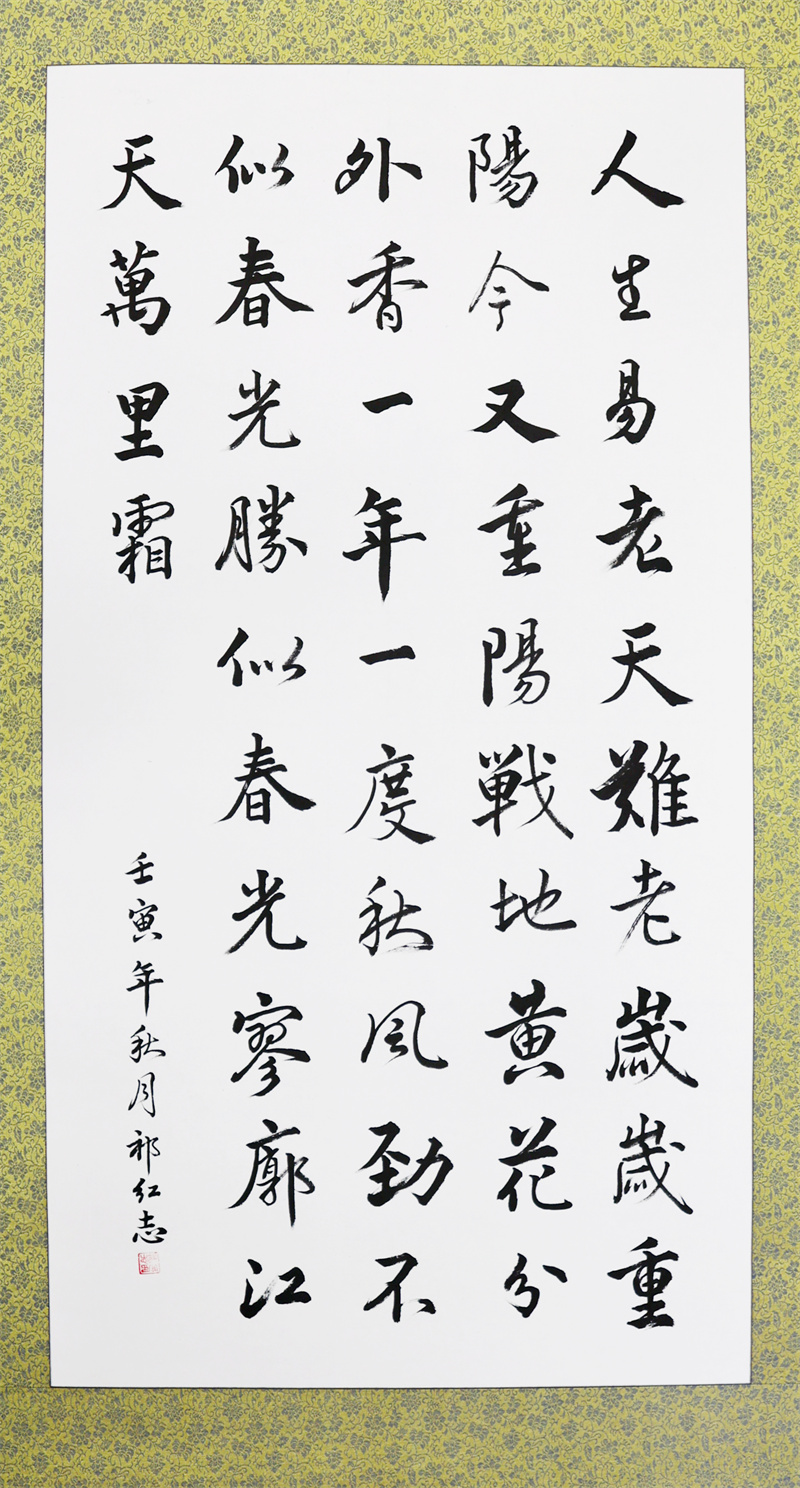 人生易老天難老歲歲重
陽今又重陽戰地黄花分
外香一年一度秋风劲不
似春光勝似春光寥廓江
天萬里霜
壬寅年秋月祁红志